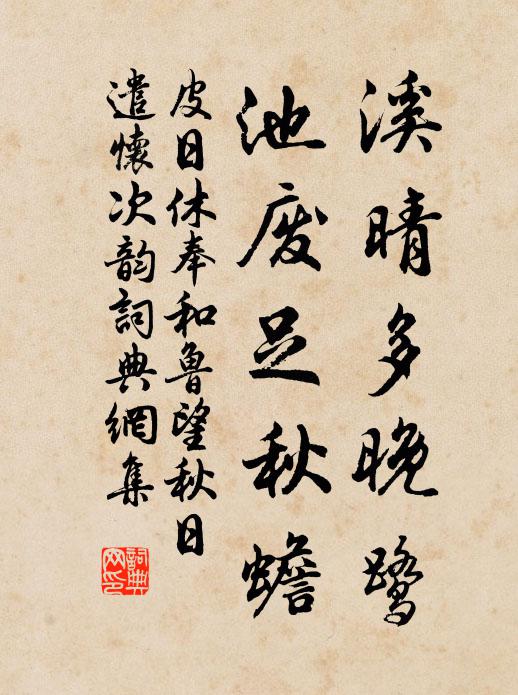 溪晴多晚鷺
池廢足秋蟾
皮日休奉和魯望秋日
遣懷次韵詞典網集
詞典网印